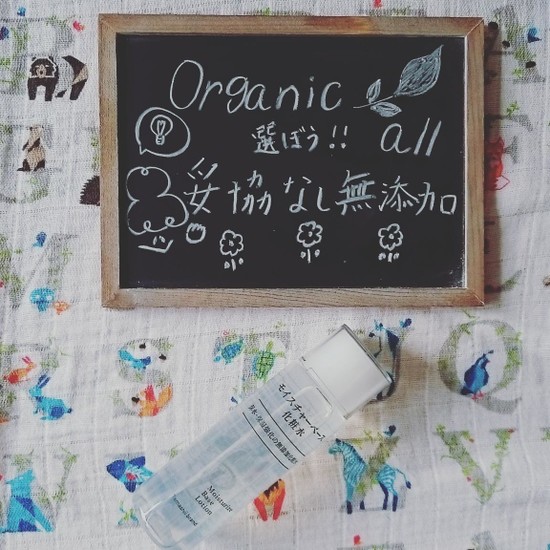 Organic
選ぼう!! all
妥協なし無添加
モイスチャーベース
化粧水
Moisturize
Base
Lotion